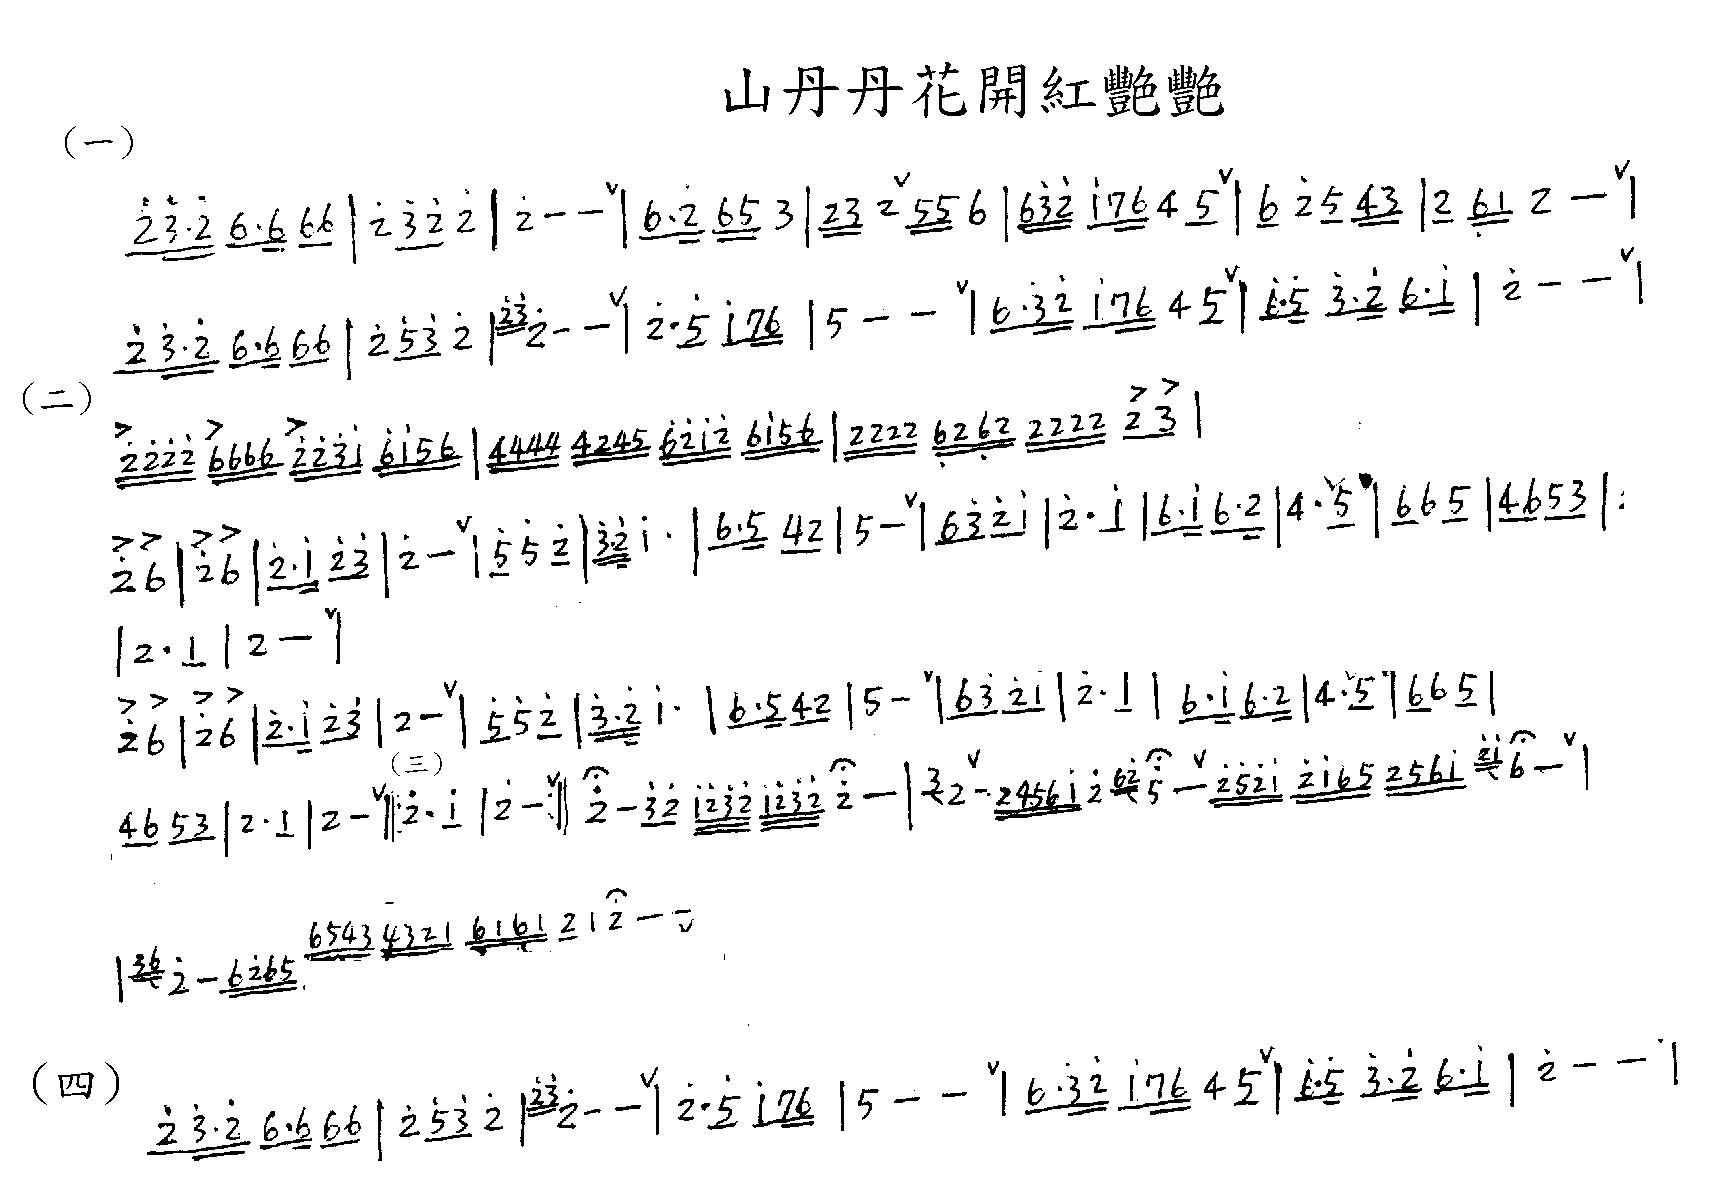 山丹丹花開紅艷艷
(一)
2 3·2 6·6 66 | 2 32 2 | 2 - - ∨| 6·2 65 3 | 23 2 ∨ 55 6 | 632 176 4 5 ∨| 6 2 5 43 | 2 61 2 - ∨|
2 3·2 6·6 66 | 2 53 2 | 23 2 - - ∨| 2·5 176 | 5 - - ∨| 6·32 176 4 5 ∨| 6·5 3·2 6·1 | 2 - - ∨|
(二)
> > > > >
2222 6666 2231 6156 | 4444 4245 6212 6156 | 2222 6262 2222 2 3 |
> > > >
2 6 | 2 6 | 2·1 23 | 2 - ∨| 5 5 2 | 32 1· | 6·5 42 | 5 - ∨| 63 21 | 2·1 | 6·1 6·2 | 4·∨5 | 6 6 5 | 46 53 | :
| 2·1 | 2 - ∨|
> > > >
2 6 | 2 6 | 2·1 23 | 2 - ∨| 5 5 2 | 3·2 1· | 6·5 42 | 5 - ∨| 63 21 | 2·1 | 6·1 6·2 | 4·∨5 | 6 6 5 |
(三)
46 53 | 2·1 | 2 - ∨‖: 2·1 | 2 - ∨:‖ 2 - 32 1232 1232 2 - | 3 2 ∨ - 24561 2 62 5 - ∨ 2521 2165 2561 21 6 - ∨|
| 36 2 - 6265 6543 4321 6161 2 1 2 - -
(四)
2 3·2 6·6 66 | 2 53 2 | 23 2 - - ∨| 2·5 176 | 5 - - ∨| 6·32 176 4 5 ∨| 6·5 3·2 6·1 | 2 - - |